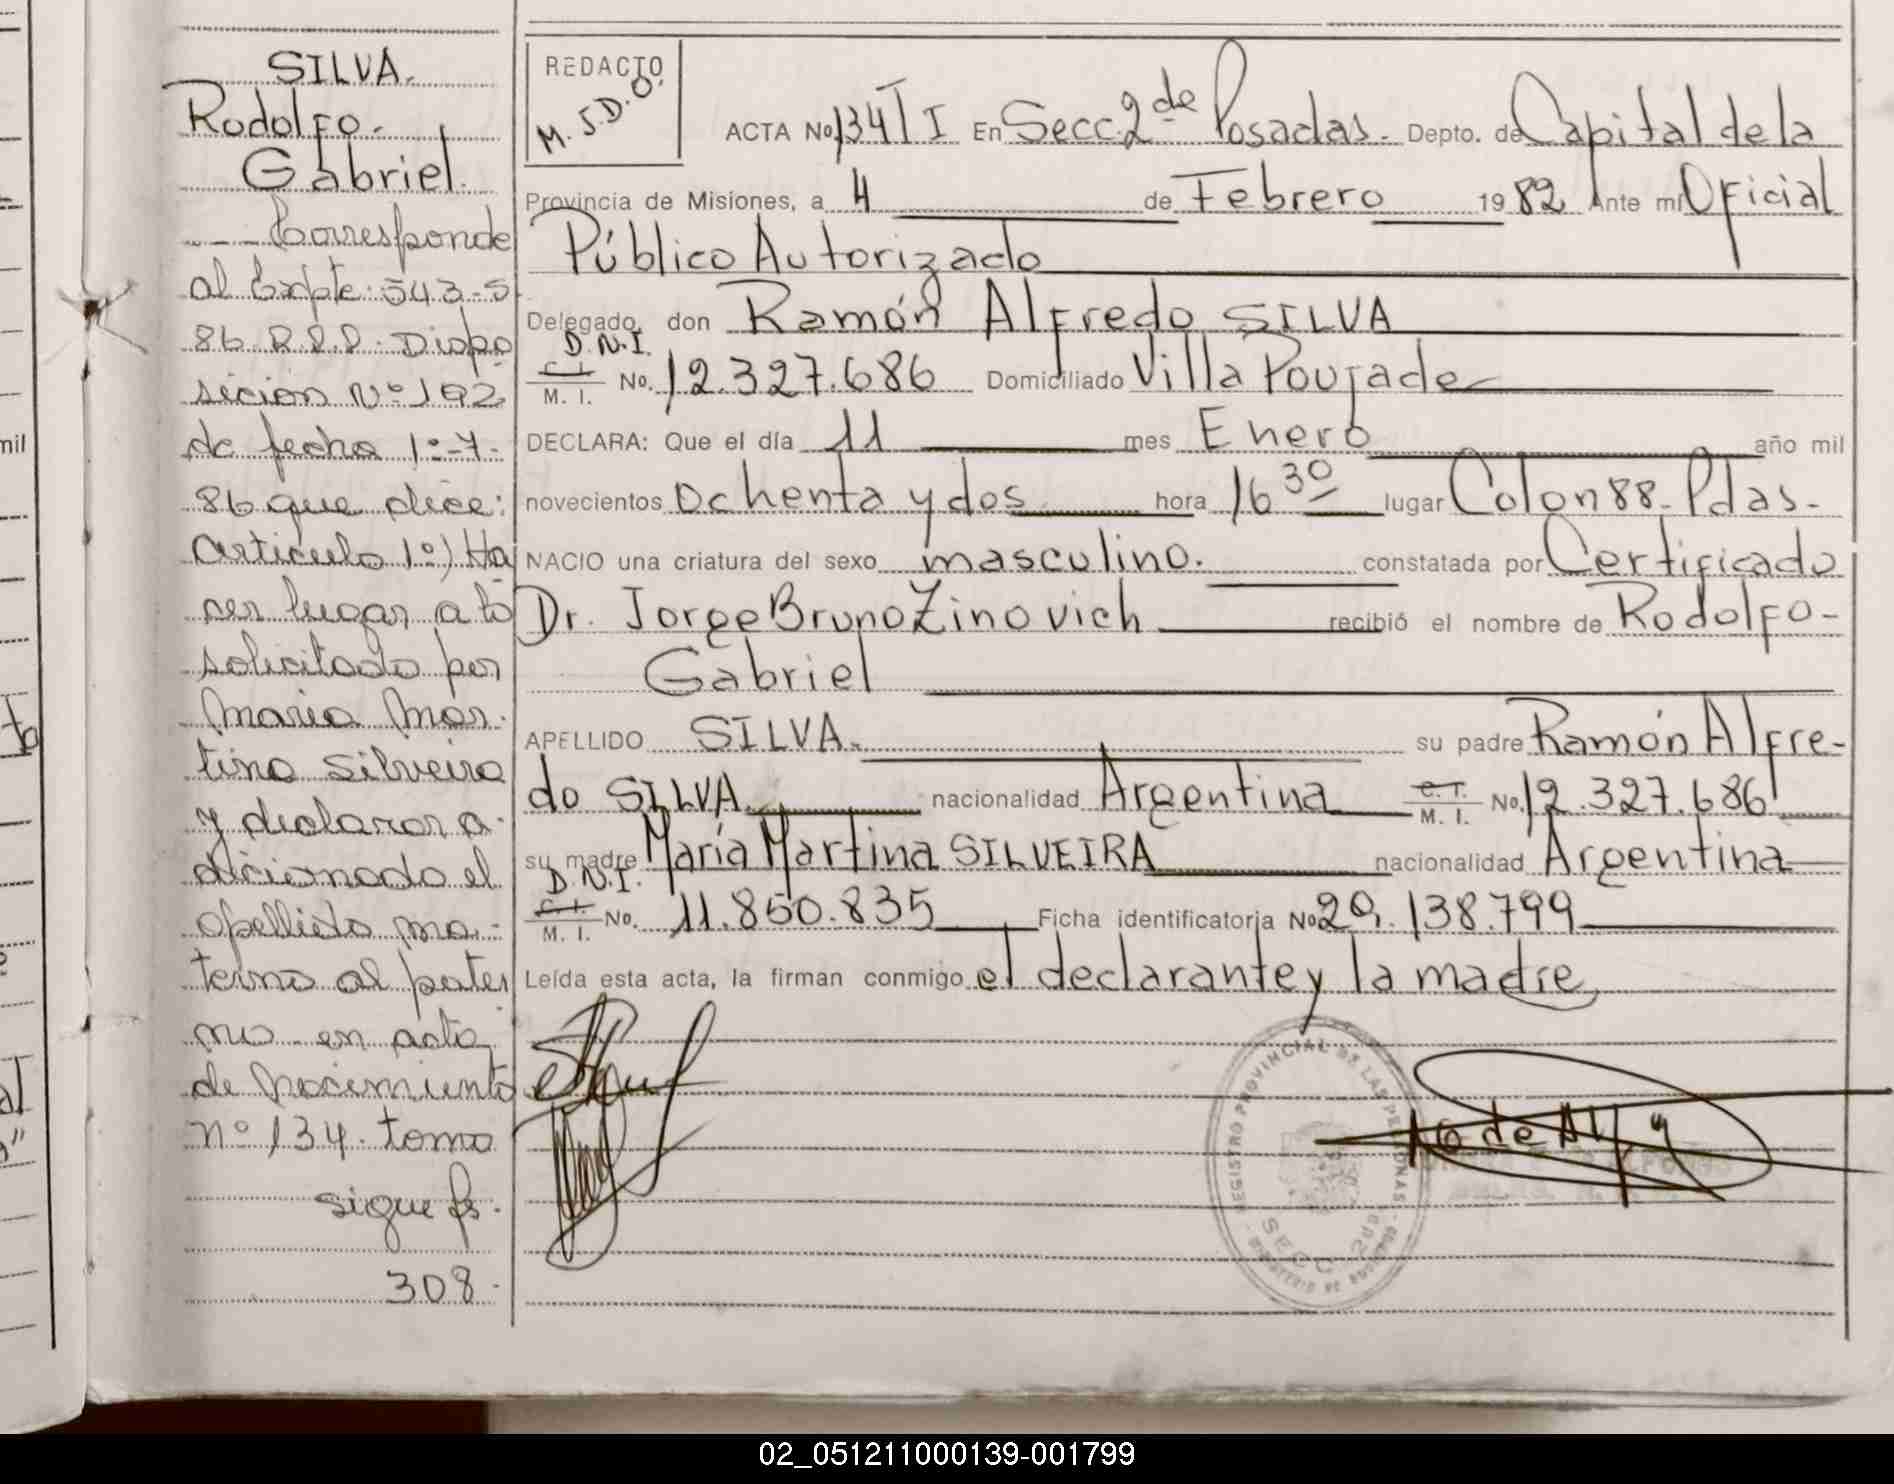 SILVA.
Rodolfo-
Gabriel.
--- Corresponde
al Expte: 543-S-
86 R.P.P. Dispo
sición Nº 192
de fecha 1:-7-
86 que dice:
Artículo 1º) Ha
cer lugar a lo
solicitado por
Maria Mar-
tina Silveira
y declarar a-
dicionado el
apellido ma-
terno al pater
no en acta
de Nacimiento
nº 134. tomo
sigue fs.
308.
REDACTO
M. J. D. O.
ACTA No. 134 T I En Secc. 2 da Posadas. Depto. de Capital de la
Provincia de Misiones, a 4 de Febrero 1982 Ante mí Oficial
Público Autorizado
Delegado, don Ramón Alfredo SILVA
D.N.I.
C. I.
M. I. No. 12.327.686 Domiciliado Villa Poujade
DECLARA: Que el día 11 mes Enero año mil
novecientos ochenta y dos hora 16 30 lugar Colon 88-Pdas-
NACIO una criatura del sexo masculino. constatada por Certificado
Dr. Jorge Bruno Zinovich recibió el nombre de Rodolfo-
Gabriel
APELLIDO SILVA. su padre Ramón Alfre-
do SILVA nacionalidad Argentina C. I. M. I. No. 12.327.686
su madre María Martina SILVEIRA nacionalidad Argentina
D.N.I.
C. I.
M. I. No. 11.850.835 Ficha identificatoria No 29.138.799
Leída esta acta, la firman conmigo el declarante y la madre
REGISTRO PROVINCIAL DE LAS PERSONAS
SECC 2da
MINISTERIO DE GOBIERNO
02_051211000139-001799